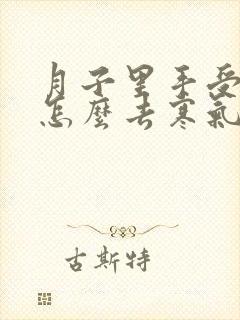 月子里手受
怎麼去寒氣
古斯特